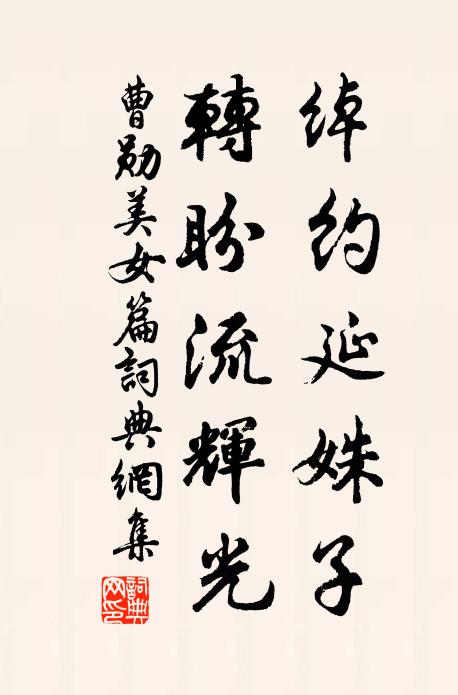 綽約延姝子
轉盼流輝光
曹勛美女篇詞典網集
詞典网印